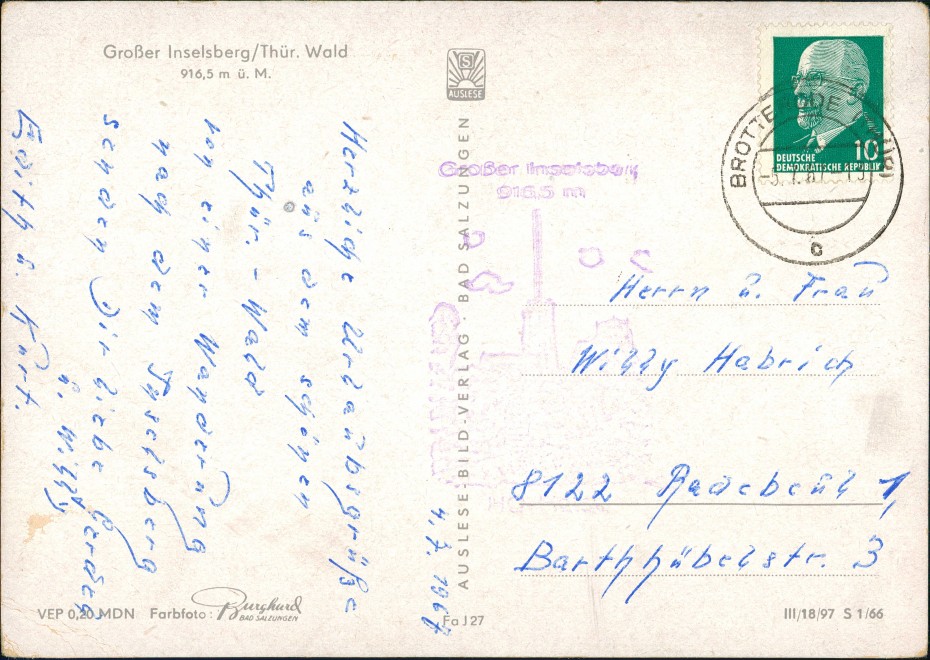 Großer Inselsberg/Thür. Wald
916,5 m ü. M.
S
AUSLESE
10
DEUTSCHE
DEMOKRATISCHE REPUBLIK
BROTTERODE
c
Großer Inselsberg
916,5 m
4.7.1967
Herzliche Urlaubsgrüße
aus dem schönen
Thür. - Wald
von einer Wanderung
nach dem Inselsberg
senden Dir liebe
u. Willy
Edith u. Kurt.
Herrn u. Frau
Willy Habrich
8122 Radebeul 1,
Barthhübelstr. 3
AUSLESE-BILD-VERLAG · BAD SALZUNGEN
VEP 0,20 MDN Farbfoto: Burghard
BAD SALZUNGEN
Fa J 27
III/18/97 S 1/66